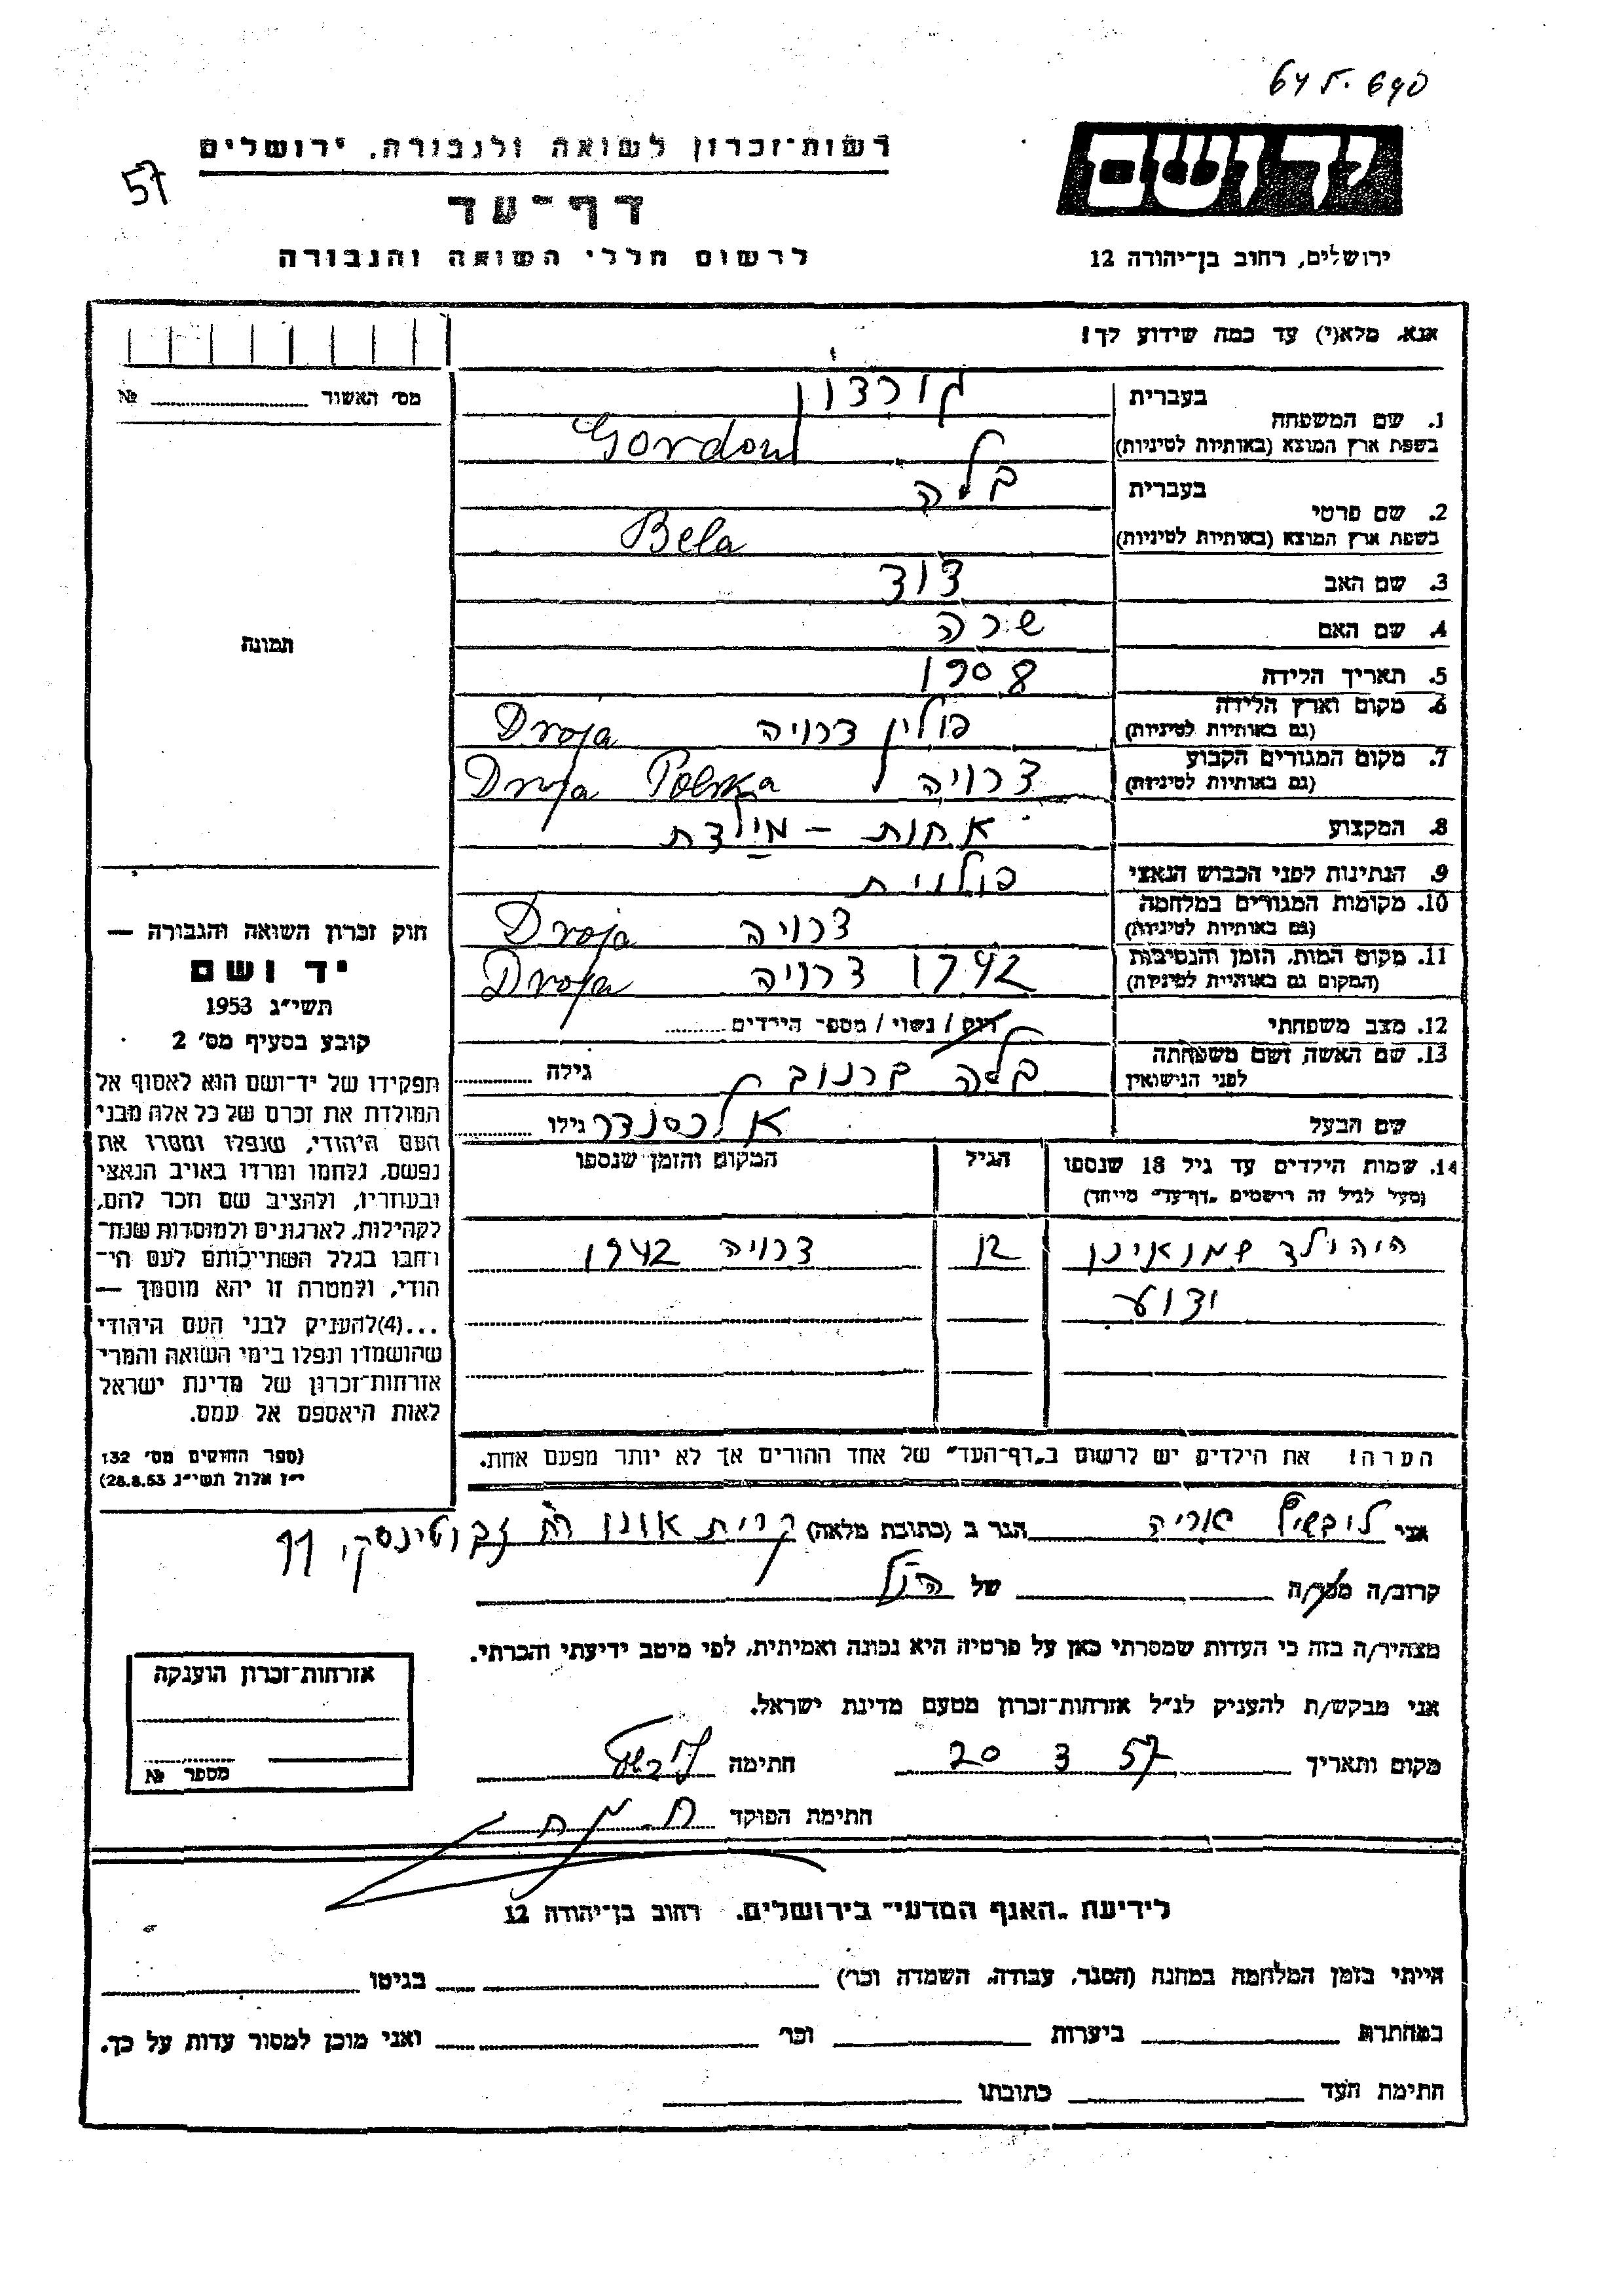 645.690
57
רשות־זכרון לשואה ולגבורה, ירושלים
דף־עד
לרשום חללי השואה והגבורה
יד ושם
ירושלים, רחוב בן־יהודה 12
אנא, מלא(י) עד כמה שידוע לך!
מס׳ האשור № 
1. שם המשפחה
בעברית גורדון
בשפת ארץ המוצא (באותיות לטיניות) Gordon
2. שם פרטי
בעברית בלה
בשפת ארץ המוצא (באותיות לטיניות) Bela
3. שם האב דוד
4. שם האם שרה
5. תאריך הלידה 1908
6. מקום וארץ הלידה (גם באותיות לטיניות) פולין דרויה Droja
7. מקום המגורים הקבוע (גם באותיות לטיניות) דרויה Droja Polska
8. המקצוע אחות - מילדת
9. הנתינות לפני הכבוש הנאצי פולנית
10. מקומות המגורים במלחמה (גם באותיות לטיניות) דרויה Droja
11. מקום המות, הזמן והנסיבות (המקום גם באותיות לטיניות) 1942 דרויה Droja
12. מצב משפחתי רוק / נשוי / מספר הילדים
13. שם האשה ושם משפחתה לפני הנישואין בלה גילה
שם הבעל אלכסנדר גילו
14. שמות הילדים עד גיל 18 שנספו
(מעל לגיל זה רושמים „דף־עד״ מיוחד)
הגיל
המקום והזמן שנספו
דרויה 1942
ידוע
הערה! את הילדים יש לרשום ב„דף־העד״ של אחד ההורים אך לא יותר מפעם אחת.
תמונה
חוק זכרון השואה והגבורה —
יד ושם
תשי״ג 1953
קובע בסעיף מס׳ 2
תפקידו של יד־ושם הוא לאסוף אל
המולדת את זכרם של כל אלה מבני
העם היהודי, שנפלו ומסרו את
נפשם, נלחמו ומרדו באויב הנאצי
ובעוזריו, ולהציב שם וזכר להם,
לקהילות, לארגונים ולמוסדות שנח־
רחבו בגלל השתייכותם לעם הי־
הודי, ולמטרה זו יהא מוסמך —
...(4) להעניק לבני העם היהודי
שהושמדו ונפלו בימי השואה והמרי
אזרחות־זכרון של מדינת ישראל
לאות היאספם אל עמם.
(ספר החוקים מס׳ 132
י״ז אלול תשי״ג 28.8.53)
אני אריה הגר ב (כתובת מלאה) קרית אונו רח ז׳בוטינסקי
קרוב/ה מכר/ה של הנ״ל
מצהיר/ה בזה כי העדות שמסרתי כאן על פרטיה היא נכונה ואמיתית, לפי מיטב ידיעתי והכרתי.
אני מבקש/ת להעניק לנ״ל אזרחות־זכרון מטעם מדינת ישראל.
מקום ותאריך 20 3 57 חתימה
חתימת הפוקד
אזרחות־זכרון הוענקה
מספר №
לידיעת „האגף המדעי״ בירושלים, רחוב בן־יהודה 12
הייתי בזמן המלחמה במחנה (הסגר, עבודה, השמדה וכו׳) בגיטו
במחתרת ביערות וכו׳ ואני מוכן למסור עדות על כך.
חתימת העד כתובתו